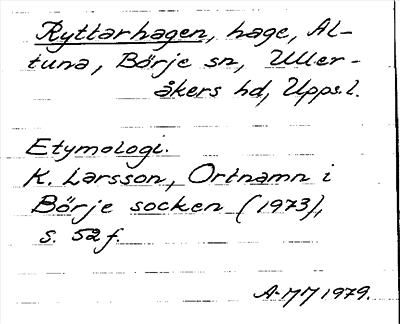 Ryttarhagen, hage, Al-
tuna, Börje sn, Uller-
åkers hd, Upps.l.
Etymologi.
K. Larsson, Ortnamn i
Börje socken (1973),
s. 52 f.
A-MM 1979.